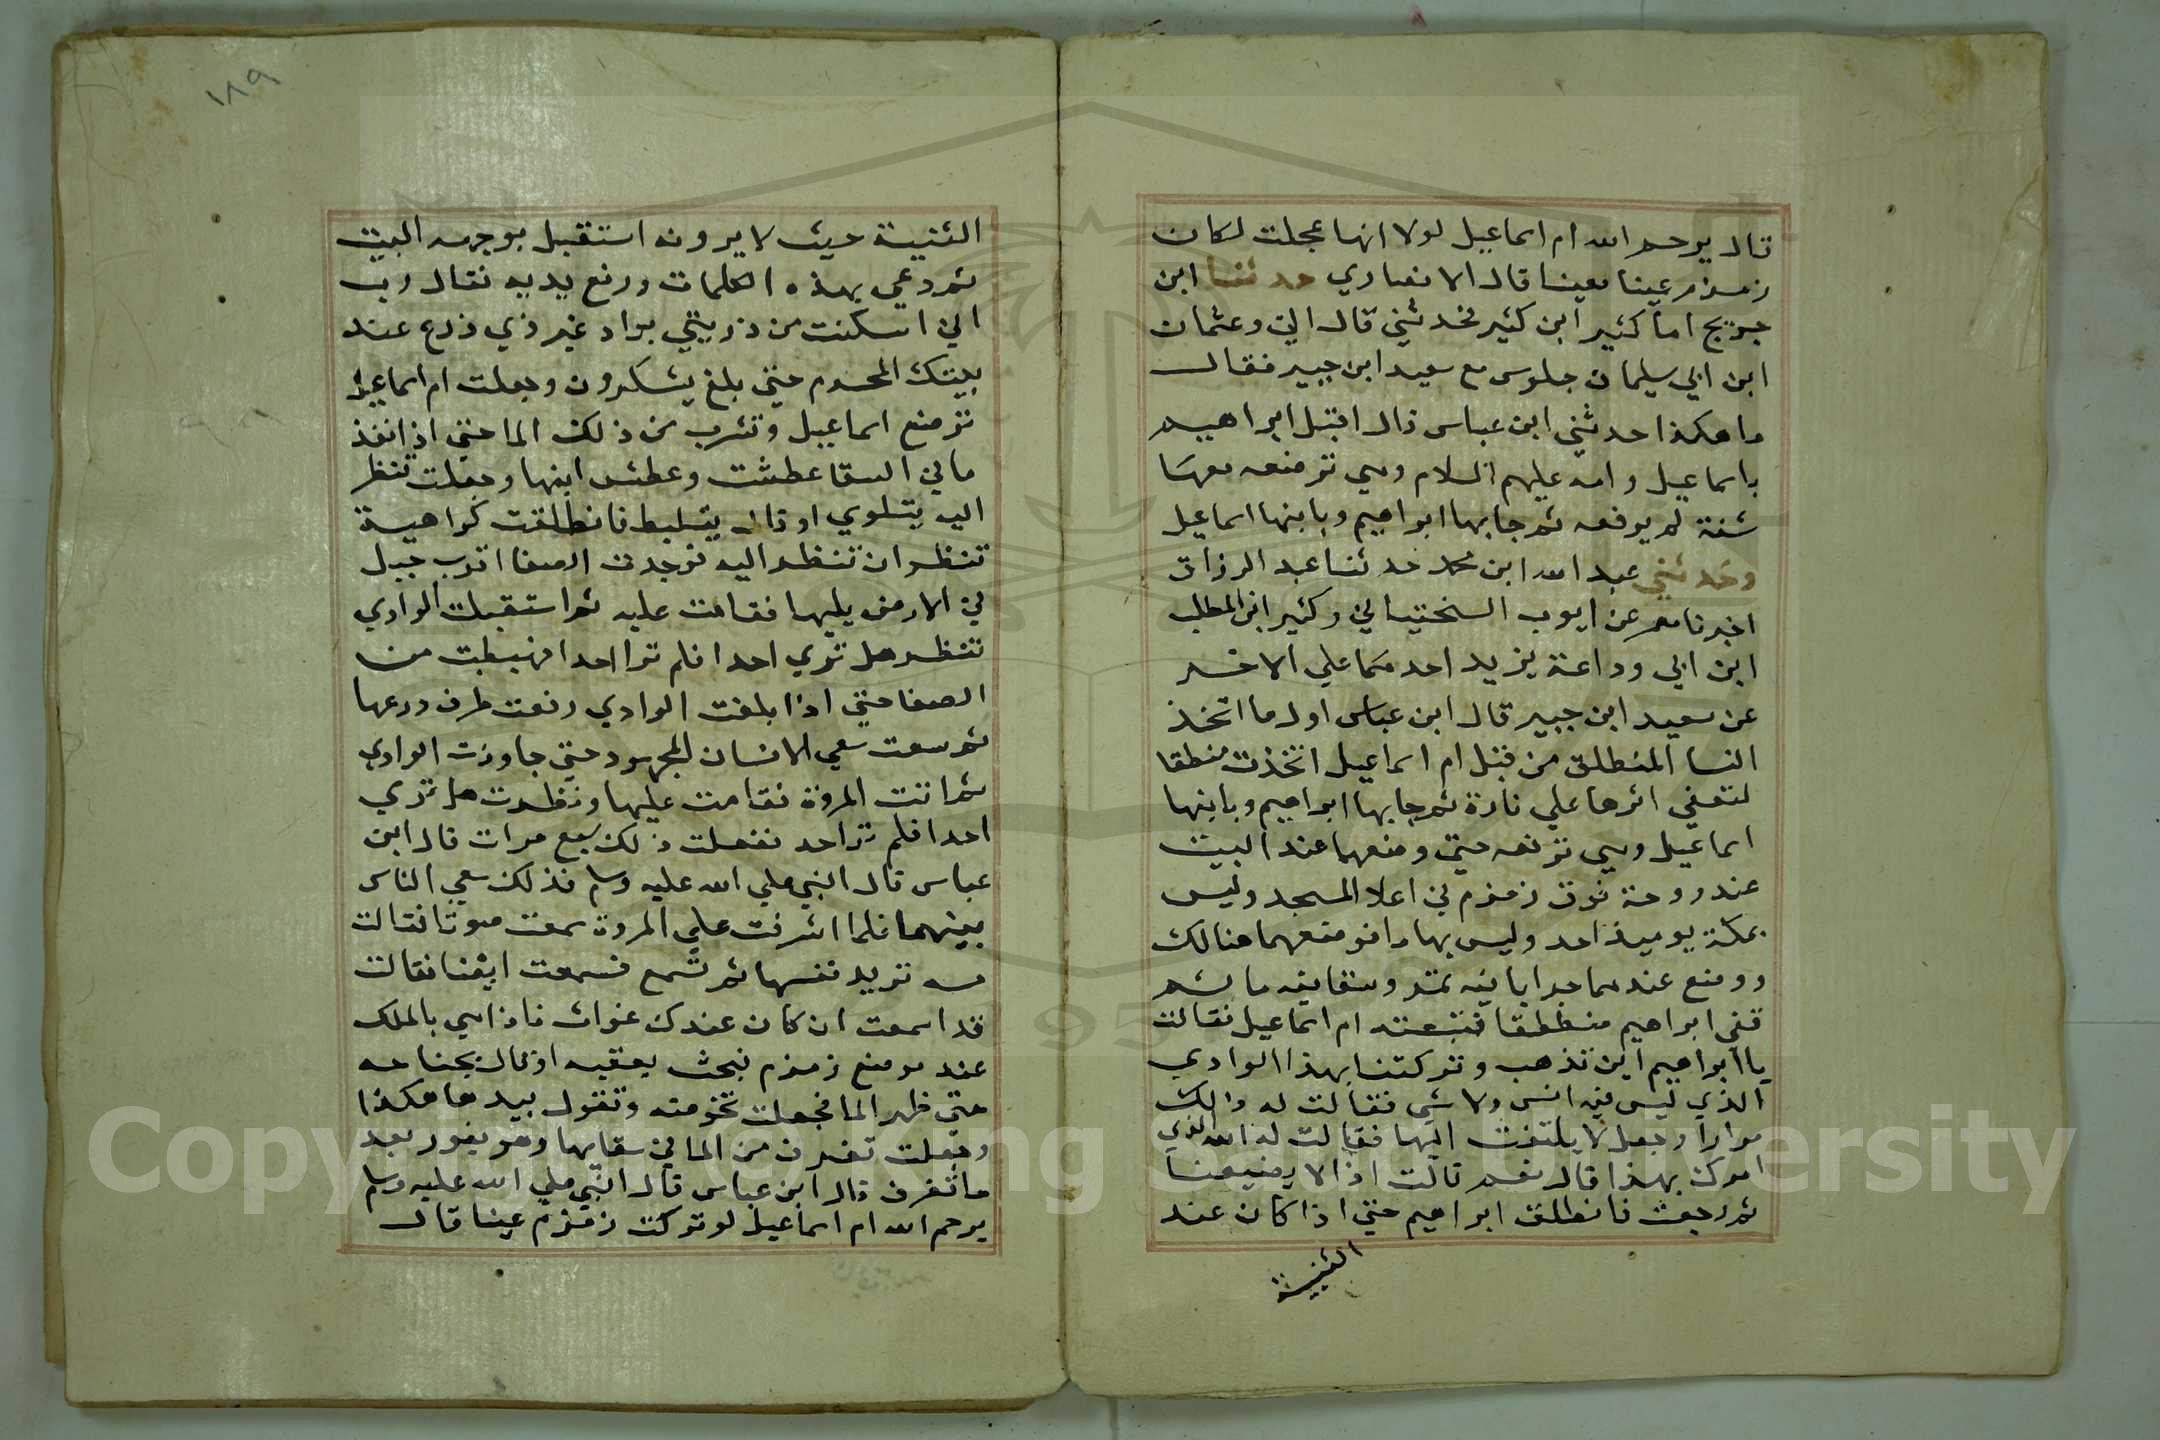 قال يرحم الله ام اسماعيل لولا انها عجلت لكان
زمزم عينا معينا قال الانصاري حدثنا ابن
جريج اما كثير ابن كثير فحدثني قال اني وعثمان
ابن ابي سليمان جلوس مع سعيد ابن جبير فقال
ما هكذا حدثني ابن عباس قال اقبل ابراهيم
باسماعيل وامه عليهم السلام وهي ترضعه معها
شنة لم يرفعه ثم جا بها ابراهيم وبابنها اسماعيل
وحدثني عبد الله ابن محمد حدثنا عبد الرزاق
اخبرنا معمر عن ايوب السختياني وكثير ابن المطلب
ابن ابي وداعة يزيد احدهما علي الاخر
عن سعيد ابن جبير قال ابن عباس اول ما اتخذ
النسا المنطلق من قبل ام اسماعيل اتخذت منطقا
لتعفي اثرها علي سارة ثم جا بها ابراهيم وبابنها
اسماعيل وهي ترضعه حتي وضعهما عند البيت
عند دوحة فوق زمزم في اعلا المسجد وليس
بمكة يوميذ احد وليس بها ما فوضعهما هنالك
ووضع عندهما جرابا فيه تمر وسقا فيه ما ثم
قفي ابراهيم منطلقا فتبعته ام اسماعيل فقالت
يا ابراهيم اين تذهب وتركتنا بهذا الوادي
الذي ليس فيه انس ولا شي فقالت له ذالك
مرارا وجعل لا يلتفت اليها فقالت له الله الذي
امرك بهذا قال نعم قالت اذا لا يضيعنا
ثم رجعت فانطلق ابراهيم حتي اذا كان عند
الثنية
١٨٩
الثنية حيث لا يرونه استقبل بوجهه البيت
ثم دعي بهذه الكلمات ورفع يديه فقال رب
اني اسكنت من ذريتي بواد غير ذي زرع عند
بيتك المحرم حتي بلغ يشكرون وجعلت ام اسماعيل
ترضع اسماعيل وتشرب من ذلك الما حتي اذا نفذ
ما في السقا عطشت وعطش ابنها وجعلت تنظر
اليه يتلوي او قال يتلبط فانطلقت كراهية
تنظر ان تنظر اليه فوجدت الصفا اقرب جبل
في الارض يليها فقامت عليه ثم استقبلت الوادي
تنظر هل تري احدا فلم ترا احدا فهبطت من
الصفا حتي اذا بلغت الوادي رفعت طرف درعها
ثم سعت سعي الانسان المجهود حتي جاوزت الوادي
ثم اتت المروة فقامت عليها ونظرت هل تري
احدا فلم ترا احد ففعلت ذلك سبع مرات قال ابن
عباس قال النبي صلي الله عليه وسلم فذلك سعي الناس
بينهما فلما اشرفت علي المروة سمعت صوتا فقالت
صه تريد نفسها ثم تسمع فسمعت ايضا فقالت
قد اسمعت ان كان عندك غواث فاذا هي بالملك
عند موضع زمزم فبحث بعقبه او قال بجناحه
حتي ظهر الما فجعلت تحوضه وتقول بيدها هكذا
وجعلت تغرف من الما في سقايها وهو يفور بعد
ما تغرف قال ابن عباس قال النبي صلي الله عليه وسلم
يرحم الله ام اسماعيل لو تركت زمزم عينا قال